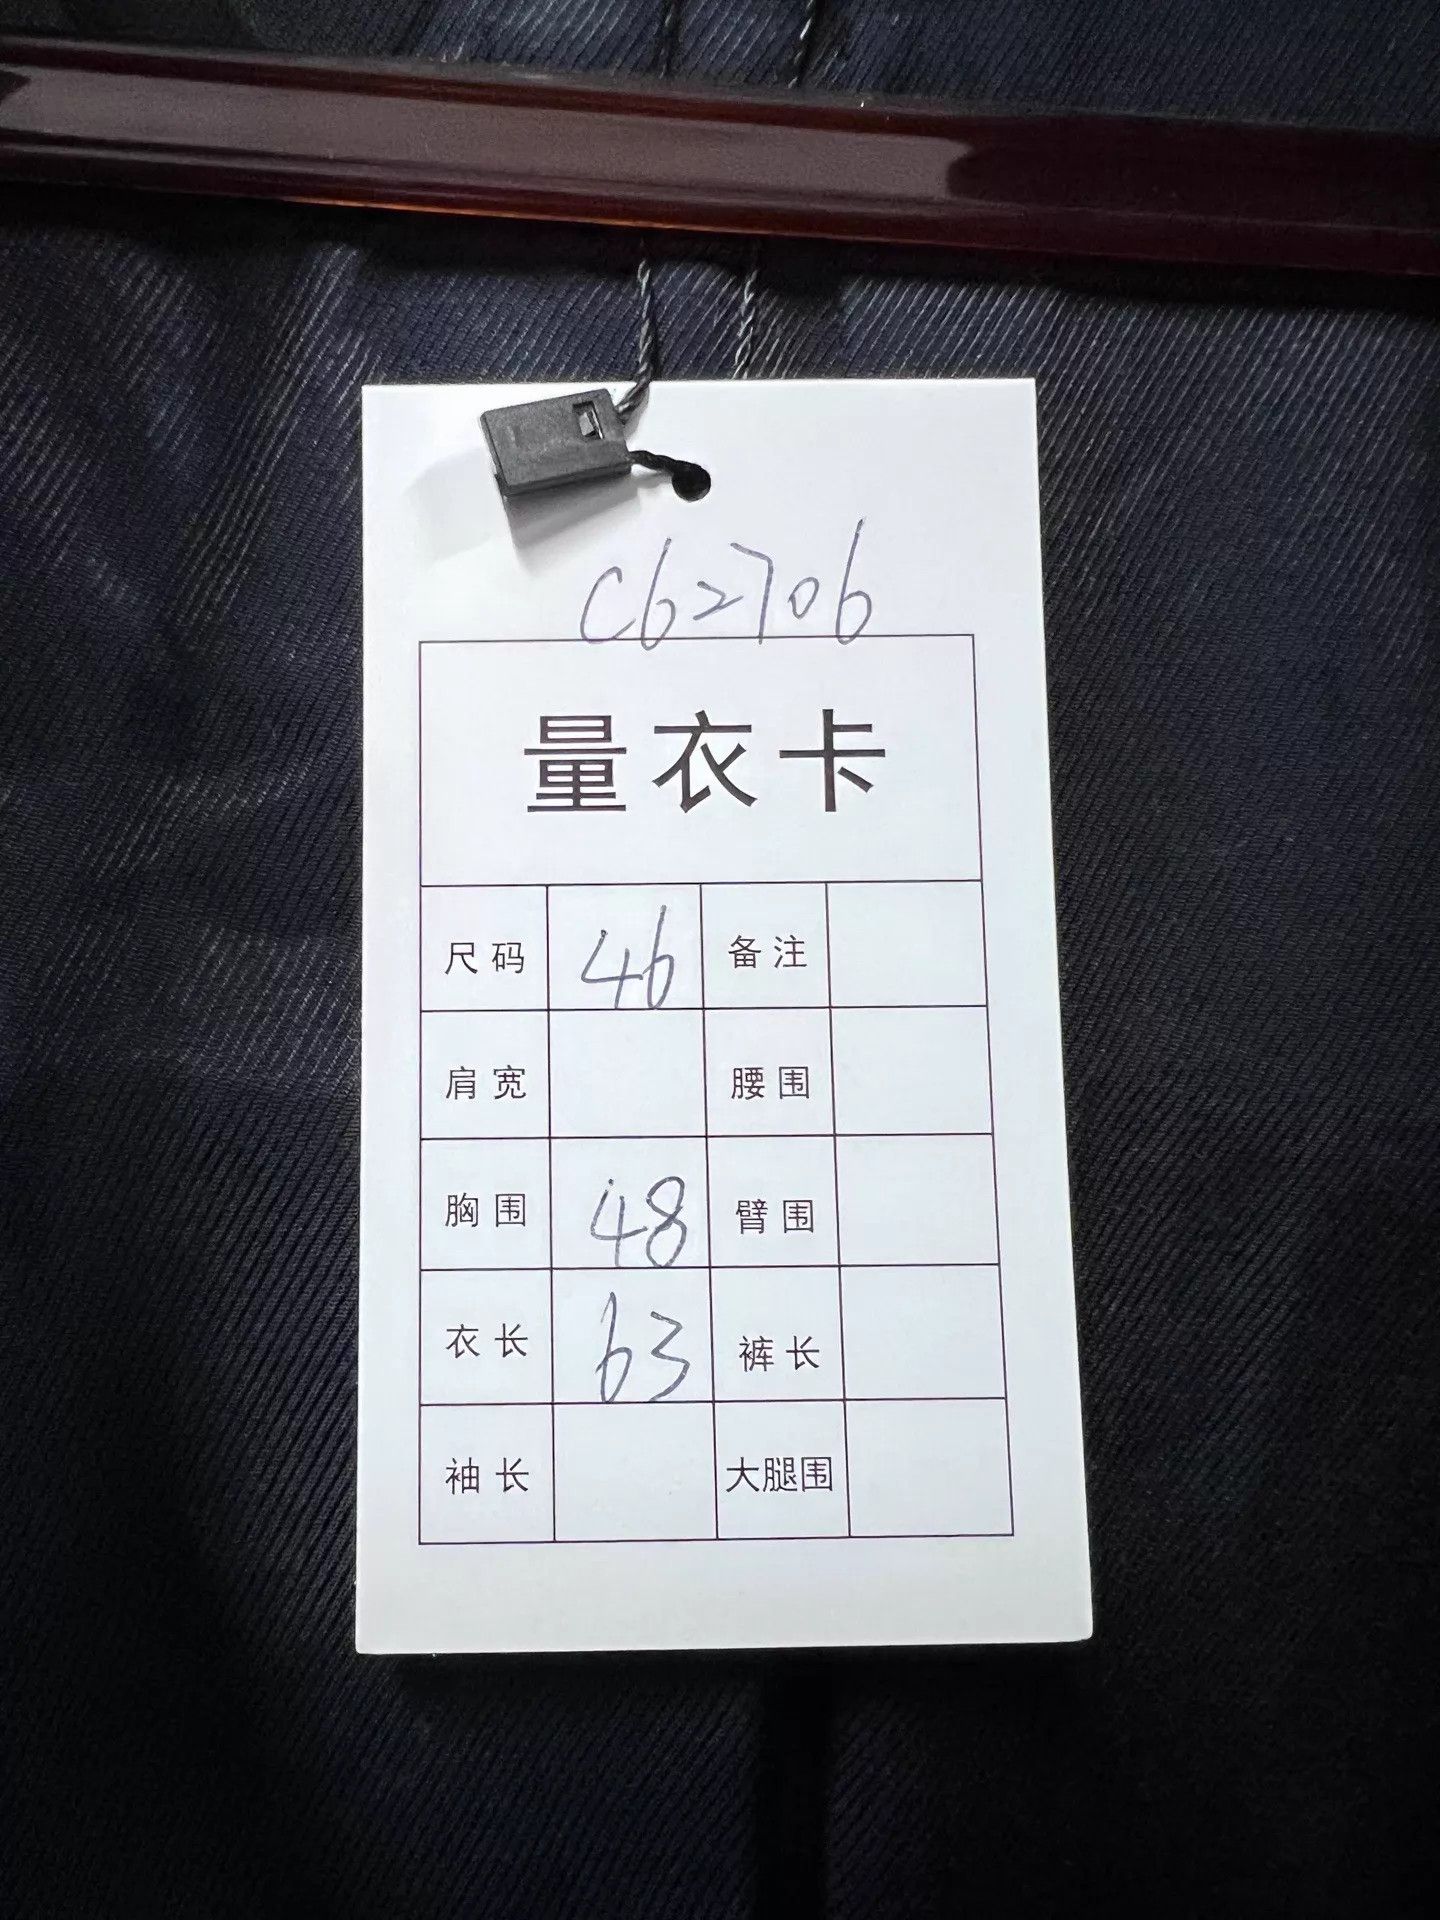 C62706
量衣卡
尺码 46 备注
肩宽 腰围
胸围 48 臂围
衣长 63 裤长
袖长 大腿围